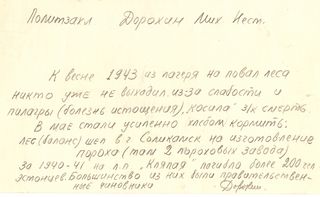 Политзакл Дорохин Мих Нест.
К весне 1943 из лагеря на повал леса
никто уже не выходил из-за слабости и
пилагры (болезнь истощения), "косила" з/к смерть.
В мае стали усиленно хлебом кормить:
лес (баланс) шел в г. Соликамск на изготовление
пороха (там 2 пороховых завода)
За 1940-41 на л.п. "Кляпая" погибло более 200 чел.
эстонцев. Большинство из них были правительствен-
ные чиновники Дорохин.